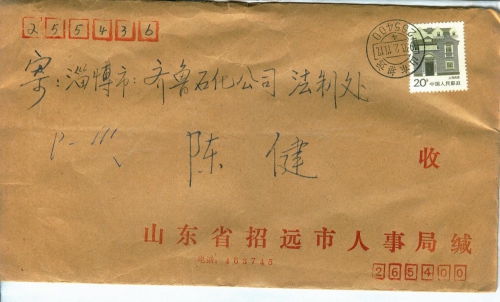 255436
寄:淄博市:齐鲁石化公司 法制处
陈健 收
山东省招远市人事局缄
电话:483745
265400
265400
20分 中国人民邮政
上海民居